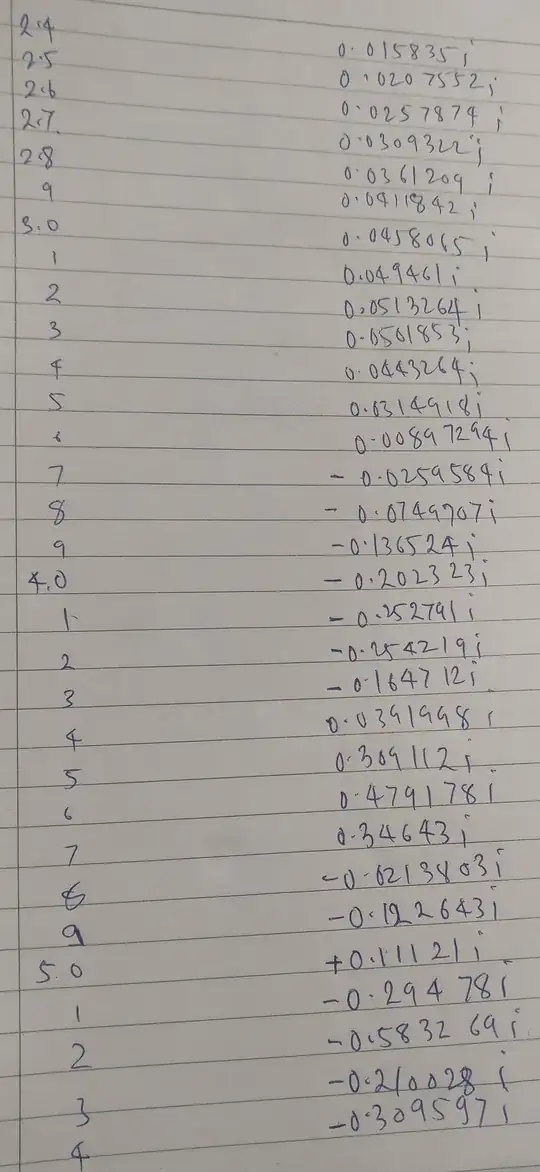 2.4 0.015835i
2.5 0.0207552i
2.6 0.0257874i
2.7 0.0309322i
2.8 0.0361209i
9 0.0411842i
3.0 0.0458065i
1 0.049461i
2 0.0513264i
3 0.0501853i
4 0.0443264i
5 0.0314918i
6 0.00897294i
7 -0.0259584i
8 -0.0749707i
9 -0.136524i
4.0 -0.202323i
1 -0.252791i
2 -0.254219i
3 -0.164712i
4 0.0391998i
5 0.309112i
6 0.479178i
7 0.34643i
8 -0.0213803i
9 -0.122643i
5.0 +0.11121i
1 -0.29478i
2 -0.583269i
3 -0.210028i
4 -0.309597i